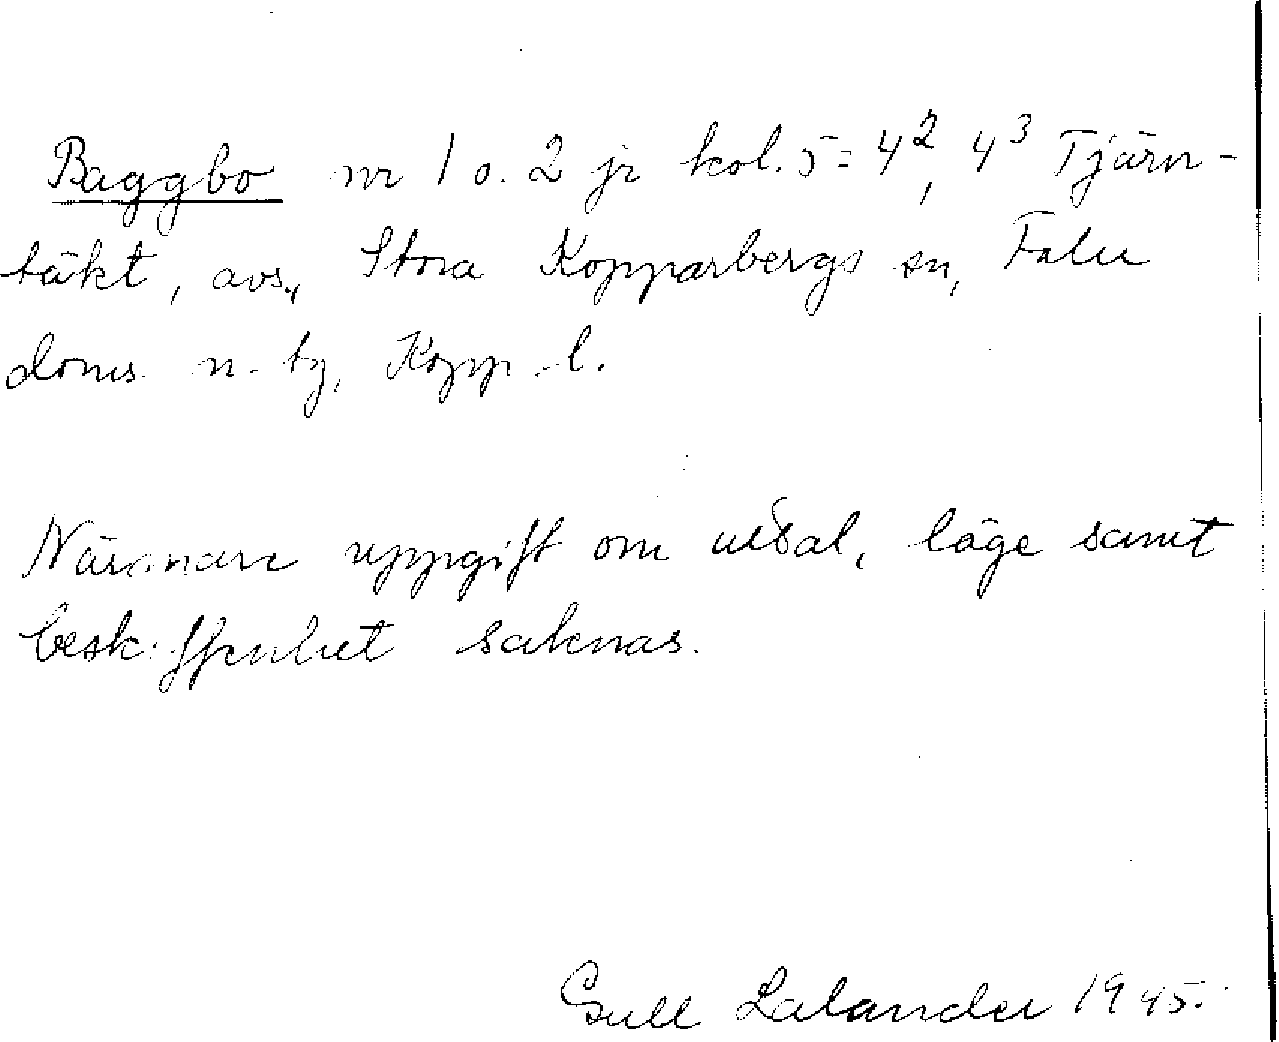 Baggbo nr 1 o. 2 jr kol. 5 = 4², 4³ Tjärn-
täkt, avs., Stora Kopparbergs sn, Falu
doms. n. tg, Kopp. l.
Närmare uppgift om uttal, läge samt
beskaffenhet saknas.
Gull Lalander 1945.